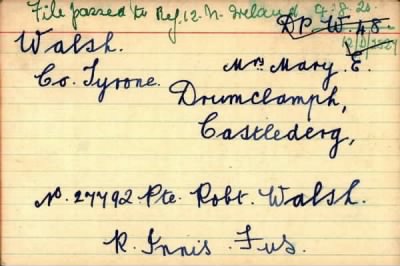 File passed to Reg. 12. N. Ireland 4.8.20.
DP. W. 48
Walsh.
Mrs Mary E.
Co. Tyrone.
Drumclamph,
Castlederg,
No. 27792 Pte. Robt. Walsh.
R. Innis. Fus.